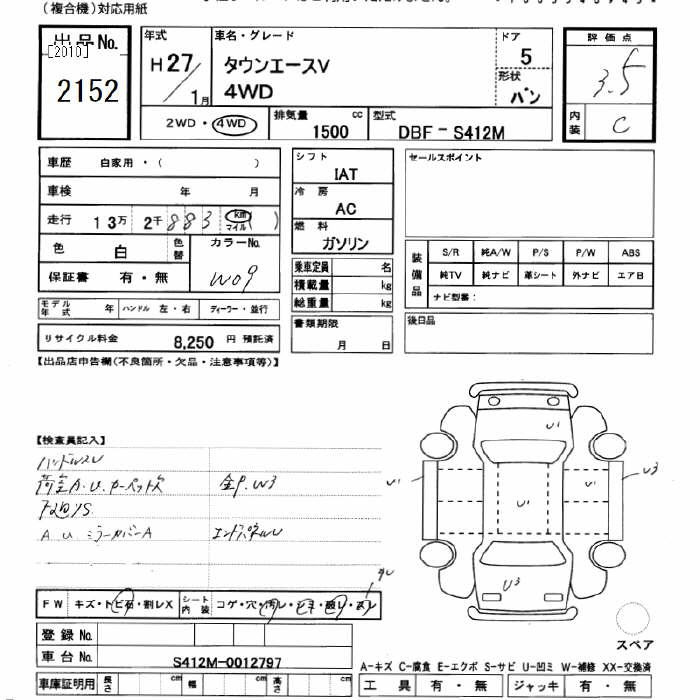 (複合機)対応用紙
出品No.
[2010]
2152
年式
H27/1月
車名・グレード
タウンエースV
4WD
ドア
5
形状
バン
評価点
3.5
内装
C
2WD・4WD
排気量
1500 cc
型式
DBF-S412M
車歴 自家用・( )
車検 年 月
走行 13万 2千 883 km マイル ( )
色 白 色替
カラーNo.
W09
保証書 有・無
モデル年式 年 ハンドル 左・右 ディーラー・並行
リサイクル料金 8,250 円 預託済
シフト
IAT
冷房
AC
燃料
ガソリン
乗車定員 名
積載量 kg
総重量 kg
書類期限
月 日
セールスポイント
装備品
S/R 純A/W P/S P/W ABS
純TV 純ナビ 革シート 外ナビ エアB
ナビ型番:
後日品
【出品店申告欄(不良箇所・欠品・注意事項等)】
【検査員記入】
A.U.カーペットヌ
W3
A U ミラーカバーA
U1
U1
U3
U1
U3
スペア
FW キズ・トビ石・割レX
シート内装 コゲ・穴・汚レ・シミ・破レ・スレ
登録No.
車台No. S412M-0012797
車庫証明用 長さ cm 幅 cm 高さ cm
A-キズ C-腐食 E-エクボ S-サビ U-凹ミ W-補修 XX-交換済
工具 有・無 ジャッキ 有・無